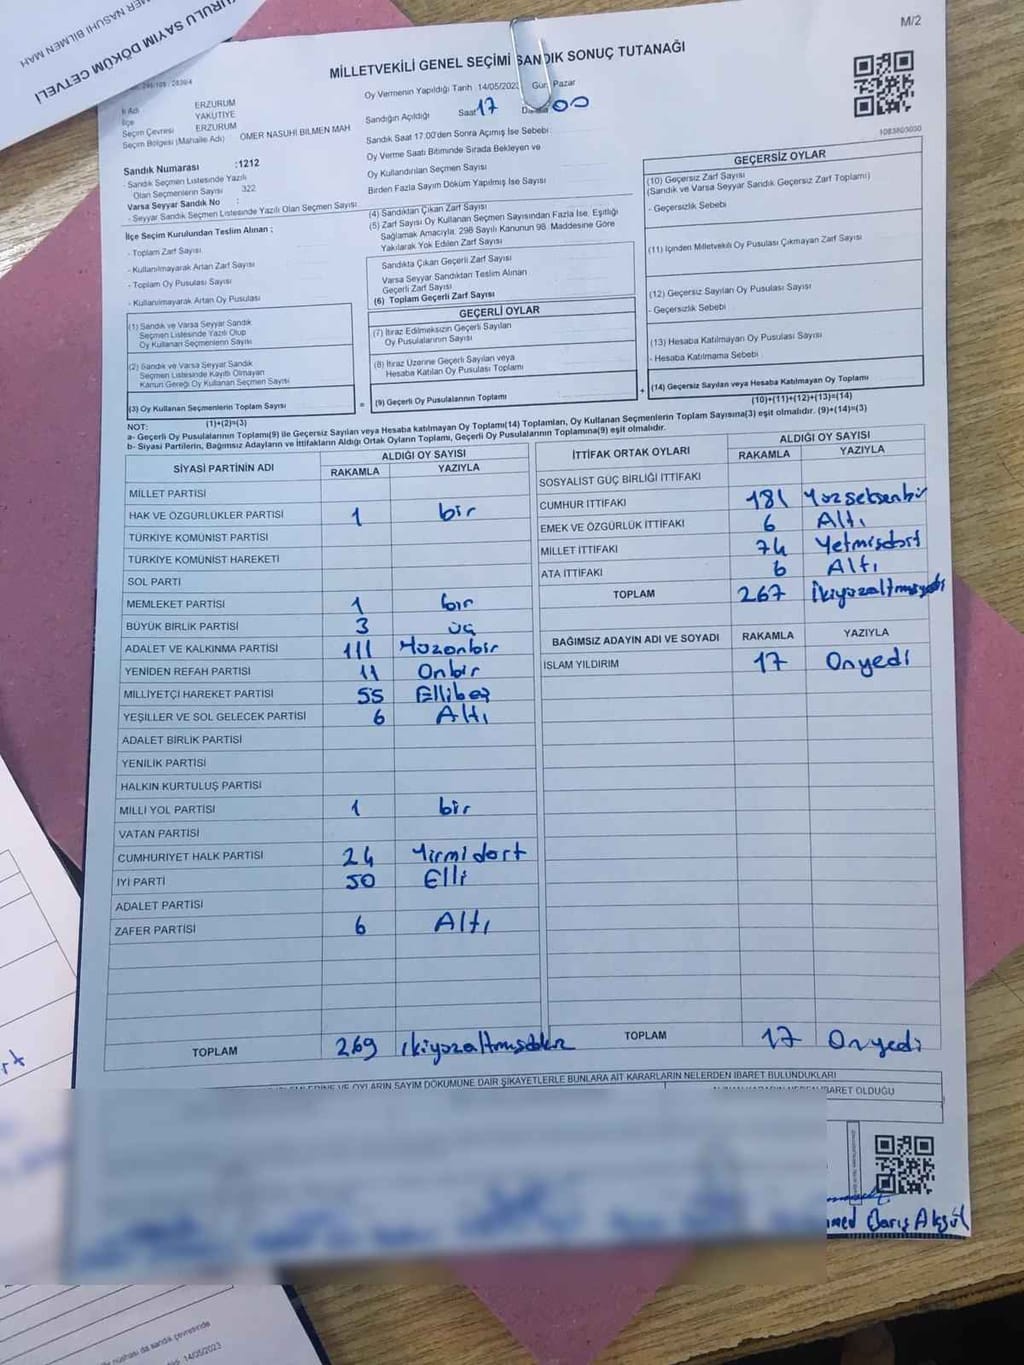 KURULU SAYIM DÖKÜM CETVELİ
ÖMER NASUHİ BİLMEN MAH
M/2
MİLLETVEKİLİ GENEL SEÇİMİ SANDIK SONUÇ TUTANAĞI
İl Adı ERZURUM
İlçe YAKUTİYE
Seçim Çevresi ERZURUM
Seçim Bölgesi (Mahalle Adı) ÖMER NASUHİ BİLMEN MAH
Sandık Numarası :1212
- Sandık Seçmen Listesinde Yazılı
Olan Seçmenlerin Sayısı 322
Varsa Seyyar Sandık No :
- Seyyar Sandık Seçmen Listesinde Yazılı Olan Seçmen Sayısı
Oy Vermenin Yapıldığı Tarih 14/05/2023 Gün Pazar
Sandığın Açıldığı Saat 17 00
Sandık Saat 17.00'den Sonra Açımış İse Sebebi
Oy Verme Saati Bitiminde Sırada Bekleyen ve
Oy Kullandırılan Seçmen Sayısı
Birden Fazla Sayım Döküm Yapılmış İse Sayısı
1083803030
İlçe Seçim Kurulundan Teslim Alınan ;
- Toplam Zarf Sayısı
- Kullanılmayarak Artan Zarf Sayısı
- Toplam Oy Pusulası Sayısı
- Kullanılmayarak Artan Oy Pusulası
(1) Sandık ve Varsa Seyyar Sandık
Seçmen Listesinde Yazılı Olup
Oy Kullanan Seçmenlerin Sayısı
(2) Sandık ve Varsa Seyyar Sandık
Seçmen Listesinde Kayıtlı Olmayan
Kanun Gereği Oy Kullanan Seçmen Sayısı
(3) Oy Kullanan Seçmenlerin Toplam Sayısı
(1)+(2)=(3)
(4) Sandıktan Çıkan Zarf Sayısı
(5) Zarf Sayısı Oy Kullanan Seçmen Sayısından Fazla İse, Eşitliği
Sağlamak Amacıyla, 298 Sayılı Kanunun 98. Maddesine Göre
Yakılarak Yok Edilen Zarf Sayısı
Sandıkta Çıkan Geçerli Zarf Sayısı
Varsa Seyyar Sandıktan Teslim Alınan
Geçerli Zarf Sayısı
(6) Toplam Geçerli Zarf Sayısı
GEÇERLİ OYLAR
(7) İtiraz Edilmeksizin Geçerli Sayılan
Oy Pusulalarının Sayısı
(8) İtiraz Üzerine Geçerli Sayılan veya
Hesaba Katılan Oy Pusulası Toplamı
= (9) Geçerli Oy Pusulalarının Toplamı
GEÇERSİZ OYLAR
(10) Geçersiz Zarf Sayısı
(Sandık ve Varsa Seyyar Sandık Geçersiz Zarf Toplamı)
- Geçersizlik Sebebi
(11) İçinden Milletvekili Oy Pusulası Çıkmayan Zarf Sayısı
(12) Geçersiz Sayılan Oy Pusulası Sayısı
- Geçersizlik Sebebi
(13) Hesaba Katılmayan Oy Pusulası Sayısı
- Hesaba Katılmama Sebebi
+ (14) Geçersiz Sayılan veya Hesaba Katılmayan Oy Toplamı
(10)+(11)+(12)+(13)=(14)
NOT:
a- Geçerli Oy Pusulalarının Toplamı(9) ile Geçersiz Sayılan veya Hesaba katılmayan Oy Toplamı(14) Toplamları, Oy Kullanan Seçmenlerin Toplam Sayısına(3) eşit olmalıdır. (9)+(14)=(3)
b- Siyasi Partilerin, Bağımsız Adayların ve İttifakların Aldığı Ortak Oyların Toplamı, Geçerli Oy Pusulalarının Toplamına(9) eşit olmalıdır.
SİYASİ PARTİNİN ADI ALDIĞI OY SAYISI
RAKAMLA YAZIYLA
MİLLET PARTİSİ
HAK VE ÖZGÜRLÜKLER PARTİSİ 1 bir
TÜRKİYE KOMÜNİST PARTİSİ
TÜRKİYE KOMÜNİST HAREKETİ
SOL PARTİ
MEMLEKET PARTİSİ 1 bir
BÜYÜK BİRLİK PARTİSİ 3 üç
ADALET VE KALKINMA PARTİSİ 111 Yüzonbir
YENİDEN REFAH PARTİSİ 11 Onbir
MİLLİYETÇİ HAREKET PARTİSİ 55 Ellibeş
YEŞİLLER VE SOL GELECEK PARTİSİ 6 Altı
ADALET BİRLİK PARTİSİ
YENİLİK PARTİSİ
HALKIN KURTULUŞ PARTİSİ
MİLLİ YOL PARTİSİ 1 bir
VATAN PARTİSİ
CUMHURİYET HALK PARTİSİ 24 Yirmidört
İYİ PARTİ 50 Elli
ADALET PARTİSİ
ZAFER PARTİSİ 6 Altı
TOPLAM 269
İTTİFAK ORTAK OYLARI ALDIĞI OY SAYISI
RAKAMLA YAZIYLA
SOSYALİST GÜÇ BİRLİĞİ İTTİFAKI
CUMHUR İTTİFAKI 181 Yüzseksenbir
EMEK VE ÖZGÜRLÜK İTTİFAKI 6 Altı
MİLLET İTTİFAKI 74 Yetmişdört
ATA İTTİFAKI 6 Altı
TOPLAM 267 İkiyüzaltmışyedi
BAĞIMSIZ ADAYIN ADI VE SOYADI RAKAMLA YAZIYLA
İSLAM YILDIRIM 17 Onyedi
TOPLAM 17 Onyedi
OYLARIN SAYIM DÖKÜMÜNE DAİR ŞİKAYETLERLE BUNLARA AİT KARARLARIN NELERDEN İBARET BULUNDUKLARI
İBARET OLDUĞU
med Barış Akgül
14/05/2023